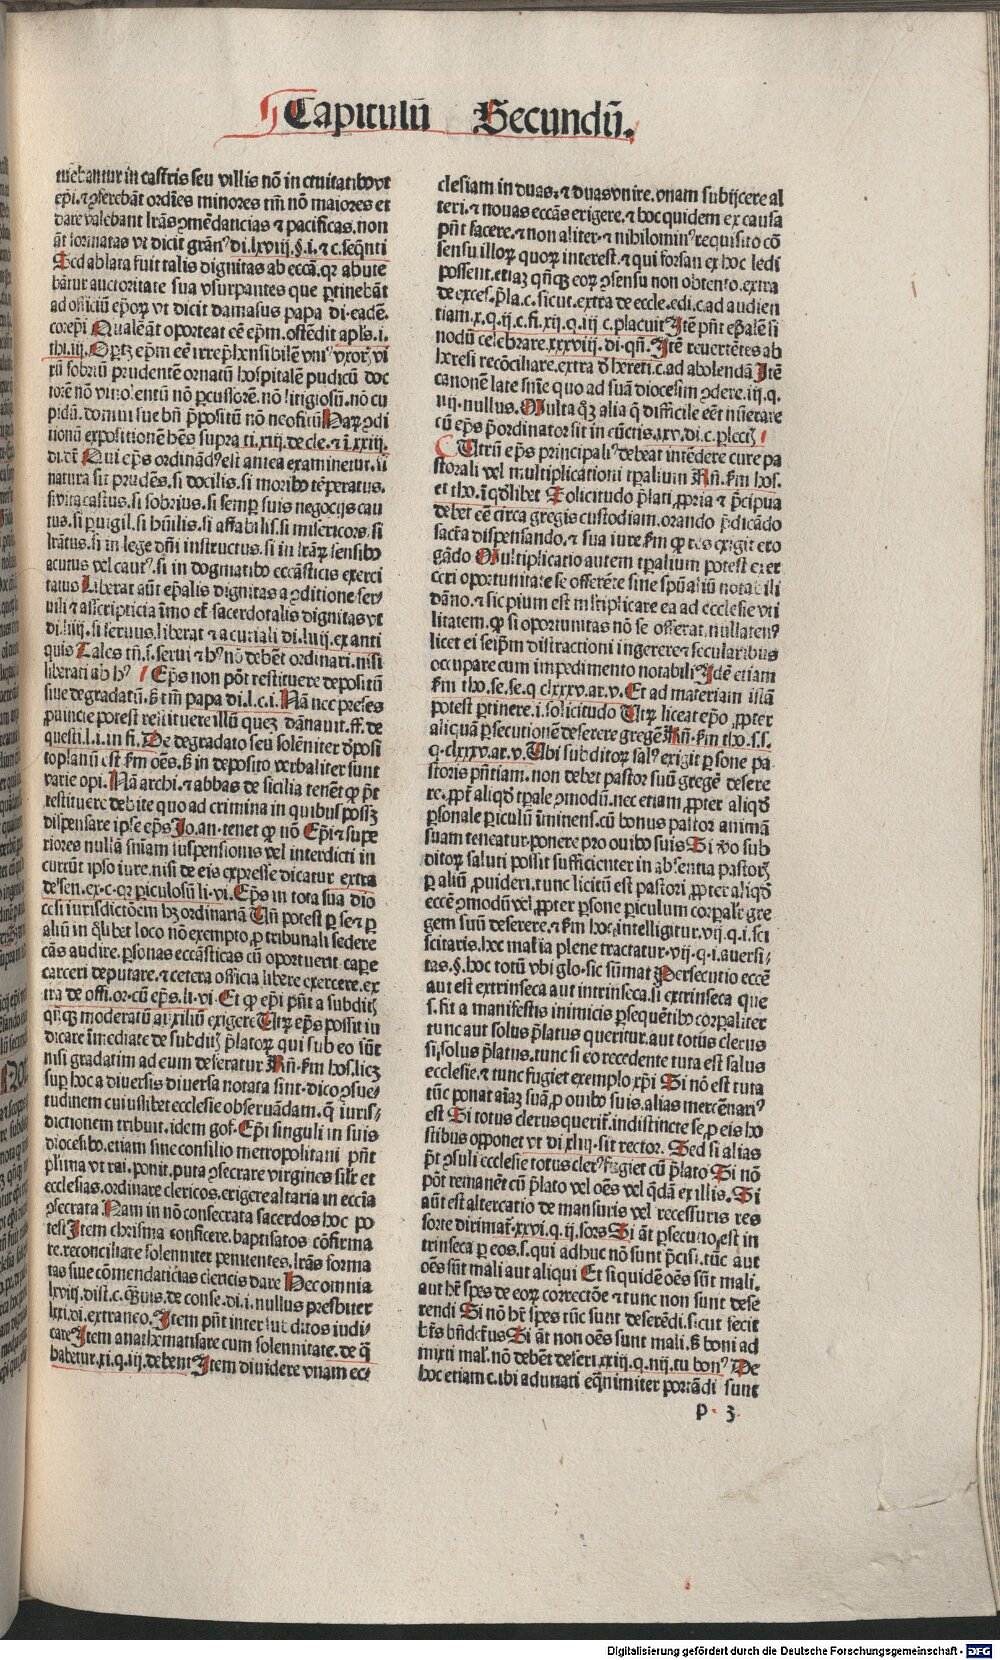 Capitulũ Secundũ.
tuebantur in castris seu villis nõ in ciuitatibo vt
epi. ⁊ ꝯferebãt ordĩes minores tm̃ nõ maiores et
dare valebant lr̃as ꝯmẽdaticias ⁊ pacificas. non
ãt formatas vt dicit grãn⁹ di. lxviij. §. i. ⁊ c. seq̃nti
Sed ablata fuit talis dignitas ab ecc̃a. qꝛ abute
bãtur auctoritate sua vsurpantes que ꝑtinebãt
ad officiũ ep̃oꝝ vt dicit damasus papa di. eadẽ.
corepi Qualẽãt oporteat eẽ ep̃m. ostẽdit apl̃s. i.
thi. iij. Oportꝫ ep̃m eẽ irrep̃hensibilẽ vni⁹ vxor̃. vi
rũ sobriũ prudentẽ ornatũ hospitalẽ pudicũ doc
torẽ nõ vinolentũ nõ ꝑcussorẽ. nõ litigiosũ. nõ cu
pidũ. domui sue bñ p̃positũ nõ neofitũ Haꝝ ꝯdi
tionũ expositionẽ hẽs supra ti. xiij. de cle. ⁊ ĩ. xxiij.
di. vñ Qui ep̃s ordinãd⁹ est antea examinetur. si
natura sit prudẽs. si docilis. si moribo tẽperatus.
si vita castus. si sobrius. si semꝑ suis negocijs cau
tus. si ꝑuigil. si hũilis. si affabilis. si misericors. si
lr̃atus. si in lege dñi instructus. si in lr̃aꝝ sensibo
acutus vel caut⁹. si in dogmatibo ecc̃asticis exerci
tatus Liberat aũt ep̃alis dignitas a ꝯditione ser-
uili ⁊ asscripticia ĩmo et̃ sacerdotalis dignitas vt
di. liiij. si seruus. liberat ⁊ a curiali di. lvij. ex anti
quis Tales tñ. s. serui ⁊ h⁹ nõ debẽt ordinari. nisi
liberati ab h⁹ Ep̃s non põt restituere depositũ
siue degradatũ. s̃ tm̃ papa di. l. c. i. Nã nec preses
ꝓuincie potest restituere illũ quez dãnauit. ff. de
questi. l. i. in fi. De degradato seu solẽniter d̃posi
to planũ est ẽm oẽs. s̃ in deposito verbaliter sunt
varie opi. Nã archi. ⁊ abbas de sicilia tenẽt ꝙ p̃t
restituere debite quo ad crimina in quibus possꝫ
dispensare ipse ep̃s Jo. an. tenet ꝙ nõ Ep̃i ⁊ supe
riores nullã sniam suspensionis vel interdicti in
currũt ipso iure. nisi de eis expresse dicatur extra
de sen. ex. c. qꝛ ꝑiculosũ li. vi. Ep̃s in tota sua dio
cesi iurisdictõem hꝫ ordinariã Uñ potest ꝑ se ⁊ ꝑ
aliũ in q̃libet loco nõ exempto ꝓ tribunali sedere
cãs audire. ꝑsonas ecc̃asticas cũ oportuerit cape
carceri deputare. ⁊ cetera officia libere exercere. ex
tra de offi. or. cũ ep̃s. li. vi. Et ꝙ ep̃i pñt a subditꝭ
qñqꝫ moderatũ auxiliũ exigere Utꝝ ep̃s possit iu
dicare ĩmediate de subditꝭ p̃latoꝝ qui sub eo sũt
nisi gradatim ad eum deferatur Rñ. ẽm hos. licꝫ
suꝑ hoc a diuersis diuersa notata sint. dico ꝯsue-
tudinem cuiuslibet ecclesie obseruãdam. q̃ iuris-
dictionem tribuit. idem gof. Ep̃i singuli in suis
diocesibo. etiam sine consilio metropolitani pñt
pl̃ima vt rai. ponit. puta ꝯsecrare virgines silr̃ et
ecclesias. ordinare clericos. erigere altaria in ecc̃ia
ꝯsecrata Nam in nõ consecrata sacerdos hoc po
test Item chrisma conficere. baptisatos cõfirma
re. reconciliare solenniter penitentes. lr̃as forma
tas siue cõmendaticias clericis dare Hec omnia
lxviij. dist. c. quis. de conse. di. i. nullus presbiter
lxxi. di. extraneo. Item pñt inter subditos iudi-
care Item anathematisare cum solennitate. de q̃
habetur. xi. q. iij. debent Item diuidere vnam ec-
clesiam in duas. ⁊ duas vnire. vnam subijcere al
teri. ⁊ nouas ecc̃as erigere. ⁊ hoc quidem ex causa
pñt facere. ⁊ non aliter. ⁊ nihilomin⁹ requisito cõ
sensu illoꝝ quoꝝ interest. ⁊ qui forsan ex hoc ledi
possent. etiaꝫ qñqꝫ eoꝝ ꝯsensu non obtento. extra
de excel. p̃la. c. sicut. extra de eccle. edi. c. ad audien
tiam. x. q. ij. c. fi. xij. q. iij c. placuit Itẽ pñt ep̃alẽ si
nodũ celebrare. xxxviij. di. qñ. Itẽ reuertẽtes ab
heresi recõciliare. extra d̃ hereti. c. ad abolendã Itẽ
canonẽ late snĩe quo ad suã diocesim ꝯdere. iij. q.
iiij. nullus. Multa qꝫ alia q̃ difficile eẽt nũerare
cũ ep̃s p̃ordinator sit in cũctis. xxv. di. c. ꝑlectꝭ
Utrũ ep̃s principali⁹ debeat intẽdere cure pa
storali vel multiplicationi tꝑalium Rñ. ẽm hos.
et tho. ĩ qõlibet Solicitudo p̃lati ꝓpria ⁊ p̃cipua
debet eẽ circa gregis custodiam. orando p̃dicãdo
sacr̃a dispensando. ⁊ sua iure ẽm ꝙ res exigit ero
gãdo Multiplicatio autem tꝑalium potest exer
ceri oportunitate se offerẽte sine sp̃ualiũ notabili
dãno. ⁊ sic pium est multiplicare ea ad ecclesie vti
litatem. ꝙ si oportunitas nõ se offerat. nullaten⁹
licet ei seip̃m distractioni ingerere ⁊ secularibus
occupare cum impedimento notabili Idẽ etiam
ẽm tho. se. se. q clxxxv. ar. v. Et ad materiam istã
potest ꝑtinere. i. solicitudo Utꝝ liceat ep̃o ꝓpter
aliquã ꝑsecutionẽ deserere gregẽ Rñ. ẽm tho. s. s.
q. clxxxv. ar. v. Ubi subditoꝝ sal⁹ exigit ꝑsone pa-
storis pñtiam. non debet pastor suũ gregẽ desere
re. ꝓpt̃ aliqd̃ tꝑale ꝯmodũ. nec etiam ꝓpter aliqd̃
ꝑsonale ꝑiculũ ĩminens. cũ bonus pastor animã
suam teneatur ponere pro ouibo suis Si v̾o sub
ditoꝝ saluti possit sufficienter in absentia pastorꝭ
ꝑ aliũ ꝓuideri. tunc licitũ est pastori ꝓpter aliqd̃
eccẽ ꝯmodũ vel ꝓpter ꝑsone ꝑiculum corꝑale gre
gem suũ deserere. ⁊ ẽm hoc intelligitur. vij. q. i. sci
scitaris. hec mat̃ia plene tractatur. vij. q. i. aduersi-
tas. §. hoc totũ vbi glo. sic sũmat Persecutio eccẽ
aut est extrinseca aut intrinseca. si extrinseca que
s. fit a manifestis inimicis ꝑsequẽtibo corꝑaliter
tunc aut solus p̃latus queritur. aut totus clerus
si solus p̃latus. tunc si eo recedente tuta est salus
ecclesie. ⁊ tunc fugiet exemplo xp̃i Si nõ est tuta
tũc ponat aĩaꝫ suã ꝓ ouibo suis. alias mercẽnari⁹
est Si totus clerus querit̃. indistincte se ꝓ eis ho
stibus opponet vt di xliij. sit rector. Sed si alias
p̃t ꝯsuli ecclesie totus cler⁹ fugiet cũ p̃lato Si nõ
põt remanẽt cũ p̃lato vel oẽs vel q̃dã ex illis. Si
aũt est altercatio de mansuris vel recessuris res
sorte dirimat̃. xxvi. q. ij. sors Si ãt ꝑsecutio est in
trinseca ꝑ eos. s. qui adhuc nõ sunt p̃cisi. tũc aut
oẽs sũt mali aut aliqui Et si quidẽ oẽs sũt mali.
aut hr̃ spes de eoꝝ correctõe ⁊ tunc non sunt dese
rendi Si nõ hr̃ spes tũc sunt deserẽdi. sicut fecit
bt̃s bñdctus Si ãt non oẽs sunt mali. s̃ boni ad
mixti mal̃. nõ debẽt deseri. xxiij. q. iiij. tu bon⁹ De
hoc etiam c. ibi adunati eq̃nimiter portãdi sunt
p. 3.
Digitalisierung gefördert durch die Deutsche Forschungsgemeinschaft - DFG